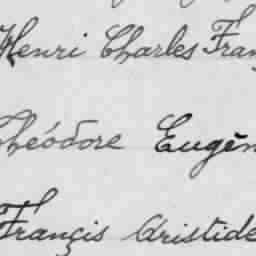 Henri Charles Fran
Théodore Eugèn
Françis Aristide